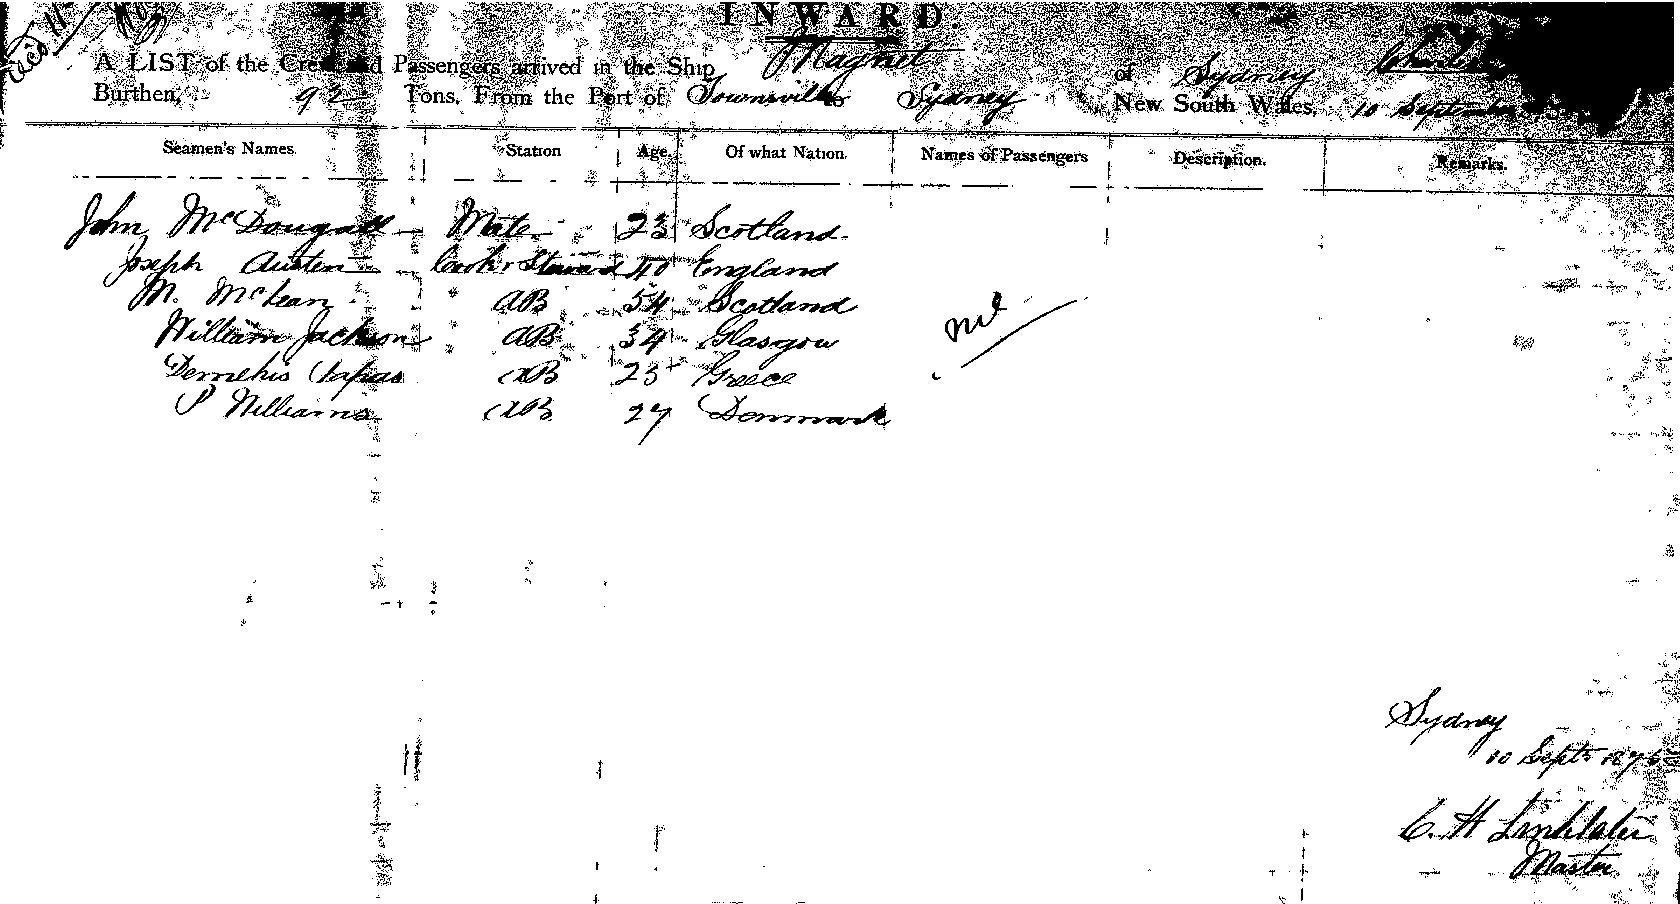 INWARD.
A LIST of the Crew and Passengers arrived in the Ship Magnet of Sydney
Burthen, 92 Tons. From the Port of Townsville to Sydney New South Wales, 10 September
Seamen's Names. Station Age. Of what Nation. Names of Passengers Description. Remarks.
John McDougall Mate 23 Scotland
Joseph Austen Cook & Steward 40 England
M. McLean AB 54 Scotland
William Jackson AB 34 Glasgow
AB 23 Greece
P Williams AB 27 Denmark
nil
Sydney
10 Sept
C. H Linklater
Master